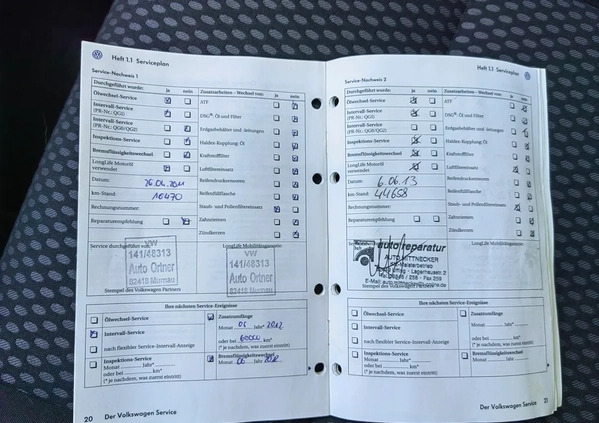 Heft 1.1 Serviceplan
Service-Nachweis 1
Durchgeführt wurde: ja nein
Zusatzarbeiten - Wechsel von: ja nein
Ölwechsel-Service
ATF
Intervall-Service
(PR-Nr.: QG1)
DSG®: Öl und Filter
Intervall-Service
(PR-Nr.: QG0/QG2)
Erdgasbehälter und -leitungen
Inspektions-Service
Haldex-Kupplung: Öl
Bremsflüssigkeitswechsel
Kraftstofffilter
LongLife Motoröl
verwendet
Luftfiltereinsatz
Datum: 26.04.2011
Reifendruckmessen
km-Stand: 16470
Reifenfüllflasche
Rechnungsnummer:
Staub- und Pollenfiltereinsatz
Reparaturempfehlung
Zahnriemen
Zündkerzen
Service durchgeführt von:
LongLife Mobilitätsgarantie:
VW
141/48313
Auto Ortner
82418 Murnau
VW
141/48313
Auto Ortner
82418 Murnau
Stempel des Volkswagen Partners
Ihre nächsten Service-Ereignisse
Ölwechsel-Service
Zusatzumfänge
Monat 05 Jahr* 2012
Intervall-Service
oder bei 60000 km*
(* je nachdem, was zuerst eintritt)
nach flexibler Service-Intervall-Anzeige
Inspektions-Service
Monat Jahr*
oder bei km*
(* je nachdem, was zuerst eintritt)
Bremsflüssigkeitswechsel
Monat Jahr
20 Der Volkswagen Service
Heft 1.1 Serviceplan
Service-Nachweis 2
Durchgeführt wurde: ja nein
Zusatzarbeiten - Wechsel von: ja nein
Ölwechsel-Service
ATF
Intervall-Service
(PR-Nr.: QG1)
DSG®: Öl und Filter
Intervall-Service
(PR-Nr.: QG0/QG2)
Erdgasbehälter und -leitungen
Inspektions-Service
Haldex-Kupplung: Öl
Bremsflüssigkeitswechsel
Kraftstofffilter
LongLife Motoröl
verwendet
Luftfiltereinsatz
Datum: 6.06.13
km-Stand: 44658
Rechnungsnummer:
Staub- und Pollenfiltereinsatz
Reparaturempfehlung
Zahnriemen
Zündkerzen
autoreparatur
AUTO MITTNECKER
Stempel des Volkswagen
Ihre nächsten Service-Ereignisse
Ölwechsel-Service
Zusatzumfänge
Monat Jahr*
Intervall-Service
oder bei km*
(* je nachdem, was zuerst eintritt)
nach flexibler Service-Intervall-Anzeige
Inspektions-Service
Monat Jahr*
oder bei km*
(* je nachdem, was zuerst eintritt)
Bremsflüssigkeitswechsel
Monat Jahr
Der Volkswagen Service 21